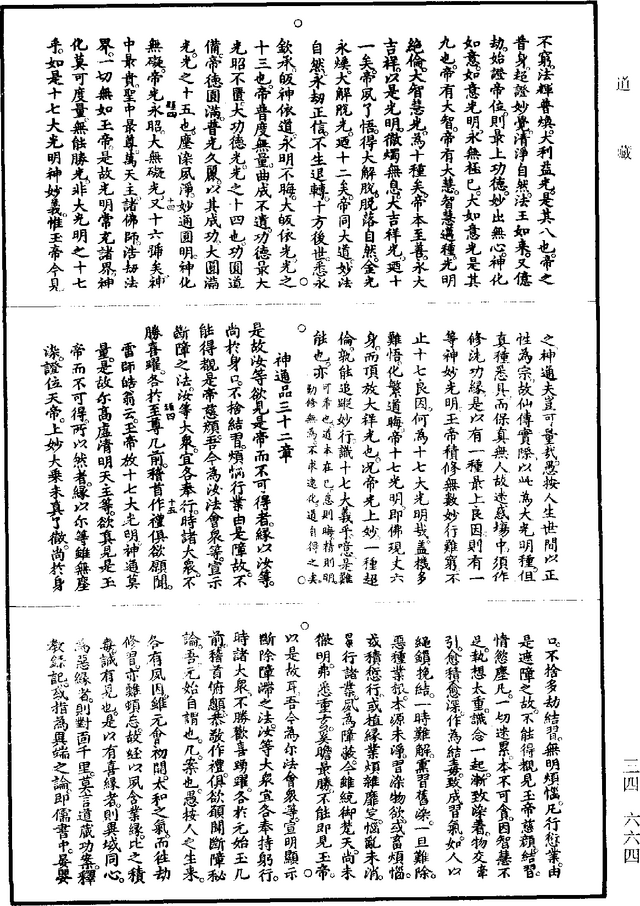 道藏
不窮法輝普煥大利益光是其八也帝之
昔身超證妙覺清淨自然法王如來又億
劫始證帝位則最上功德妙出無心神化
如意如意光明永無極已大如意光是其
九也帝有大智帝有大慧智慧邁種光明
絶倫大智慧光為十種矣帝本至善永大
吉祥以是光明徹燭無息大吉祥光迺十
一矣帝夙了悟得大解脫脫落自然金光
永煥大解脫光迺十二矣帝同大道妙法
自然永劫正信不生退轉十方後世悉永
欽承皈神依道永明不晦大皈依光光之
十三也帝普度無量曲成不遺功德最大
光昭不匱大功德光光之十四也功圓道
備帝德圓滿普光久麗以其成功大圓滿
光光之十五也塵染夙淨妙通圓明神化
無礙帝光永昭大無礙光又十六號矣神
中最貴聖中最尊萬天主諸佛師浩劫法
界一切無如玉帝是故光明常充諸界神
化莫可度量無能勝光非大光明之十七
乎如是十七大光明神妙義惟玉帝今具
之神通夫豈可量哉愚按人生世間以正
性為宗故仙傳實際以此為大光明種但
真種悉具而保真無人故迷惑場中須作
修洗功緣是以有一種最上良因則有一
等神妙光明玉帝積修無數妙行難窮不
止十七良因何為十七大光明哉蓋機多
難悟化繁道晦帝十七光明即佛現丈六
身而頂放大祥光也况帝光上妙一種超
倫孰能追蹤妙行識十七大義乎噫是難
能也亦可希也道本在已息則晦積則明
勤修無為不求速化道自得之矣
神通品三十二章
是故汝等欲見是帝而不可得者緣以汝等
尚於身口不捨結習煩惱行業由是障故不
能得親是帝慈顏吾今為汝法會衆等宣示
斷障之法汝等大衆宜各奉行時諸大衆不
勝喜躍各於至尊几前稽首作禮俱欲願聞
雷師皓翁云玉帝放十七大光明神通莫
量是故尒高虛清明天主等欲真見是玉
帝而不可得所以然者緣以尒等雖無塵
染證位天帝上妙大乘未真了徹尚於身
口不捨多劫結習無明煩惱凡行衍業由
是遮障之故不能得親見玉帝慈顏結習
情慾塵凡一切迷累本不可貪因智慧不
足執想太重識念一起漸致染着物交牽
引愈積愈深作為結毒致成習氣如人以
繩鎖挽結一時難解熏習舊染一旦難除
惡種業根本源未淨習染物欲或畜煩惱
或積愆行或植緣業煩雜靡定惱亂未消
累行諸業夙為障蔽今雖統御梵天尚未
徹明弗悉重玄奚贍最勝不能即見玉帝
以是故耳吾今為尒法會衆等宣明顯示
斷除障滯之法汝等大衆宜各奉持躬行
時諸大衆不勝歡喜踴躍各於元始玉几
前稽首俯顙恭敬作禮俱欲願聞斷障秘
論吾元始自謂也几案也愚按人之生來
各有夙因維元會初間太和之氣而往劫
修習亦難頓忘故經以夙含業緣比之積
毒誠有見也是以有喜緣者則異域同心
為惡緣者則對面千里莫言道藏功案釋
教錄記或指為異端之論即儒書中晏嬰
三四
六六四